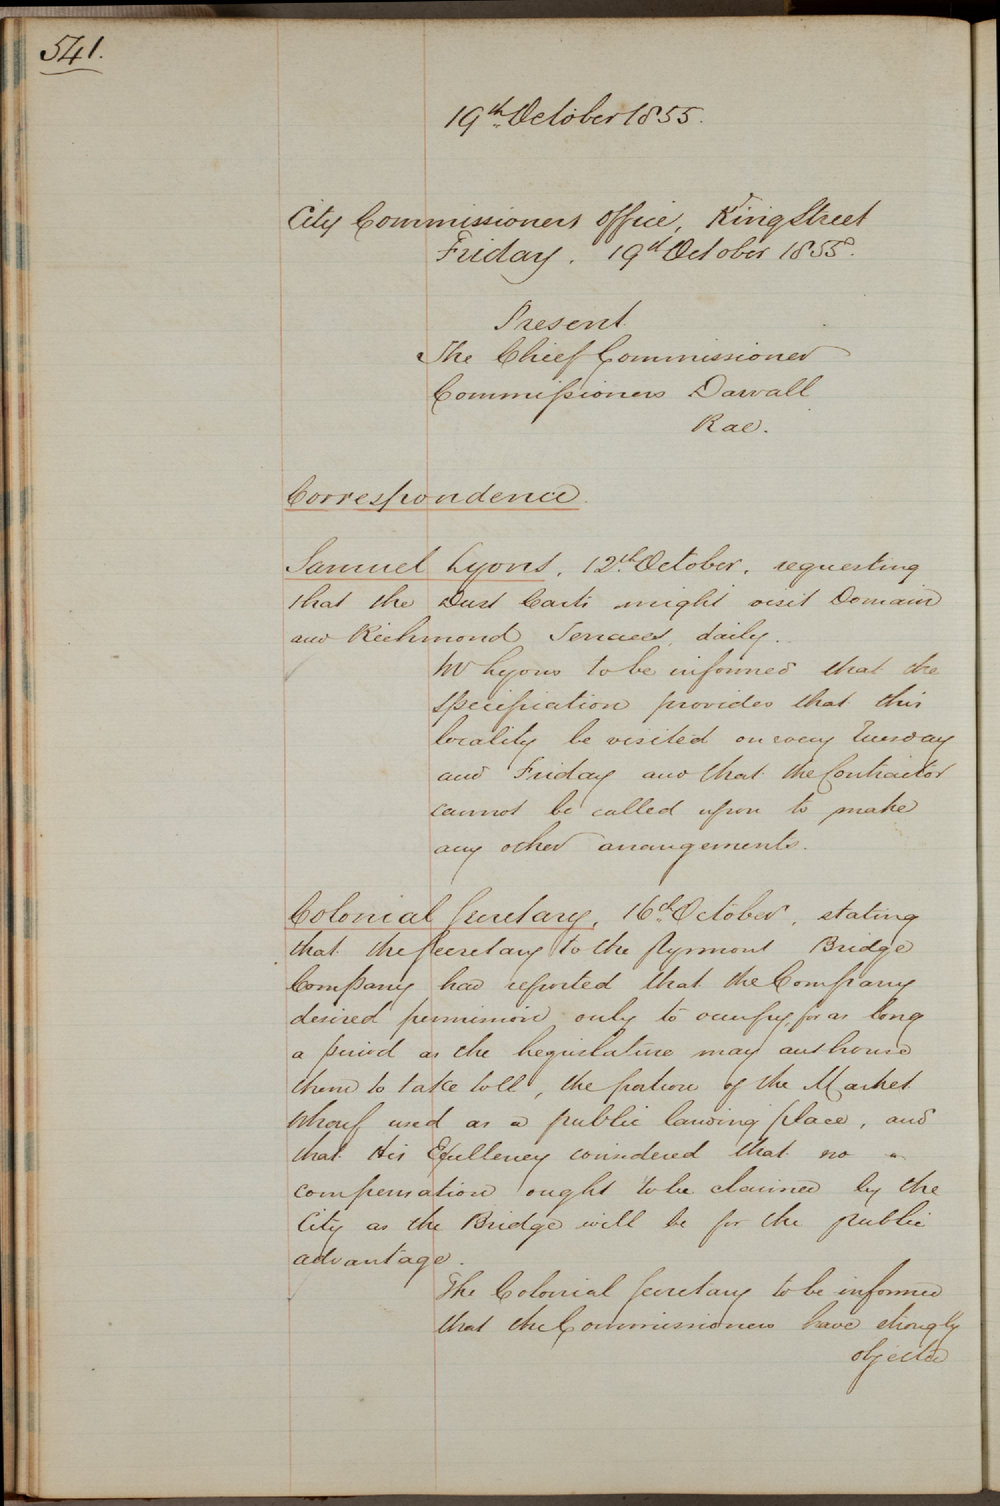 541.
19th October 1855.
City Commissioners Office, King Street
Friday. 19th October 1855.
Present
The Chief Commissioner
Commissioners Darvall
Rae.
Correspondence.
Samuel Lyons, 12th October, requesting
that the Dust Carts might visit Domain
and Richmond Terraces, daily.
Mr Lyons to be informed that the
specification provides that this
locality be visited on every Tuesday
and Friday and that the Contractor
cannot be called upon to make
any other arrangements.
Colonial Secretary, 16th October, stating
that the Secretary to the Pyrmont Bridge
Company had reported that the Company
desired permission only to occupy, for as long
a period as the Legislature may authorise
them to take toll, the portion of the Market
Wharf used as a public landing place, and
that His Excellency considered that no
compensation ought to be claimed by the
City as the Bridge will be for the public
advantage.
The Colonial Secretary to be informed
that the Commissioners have strongly
objected